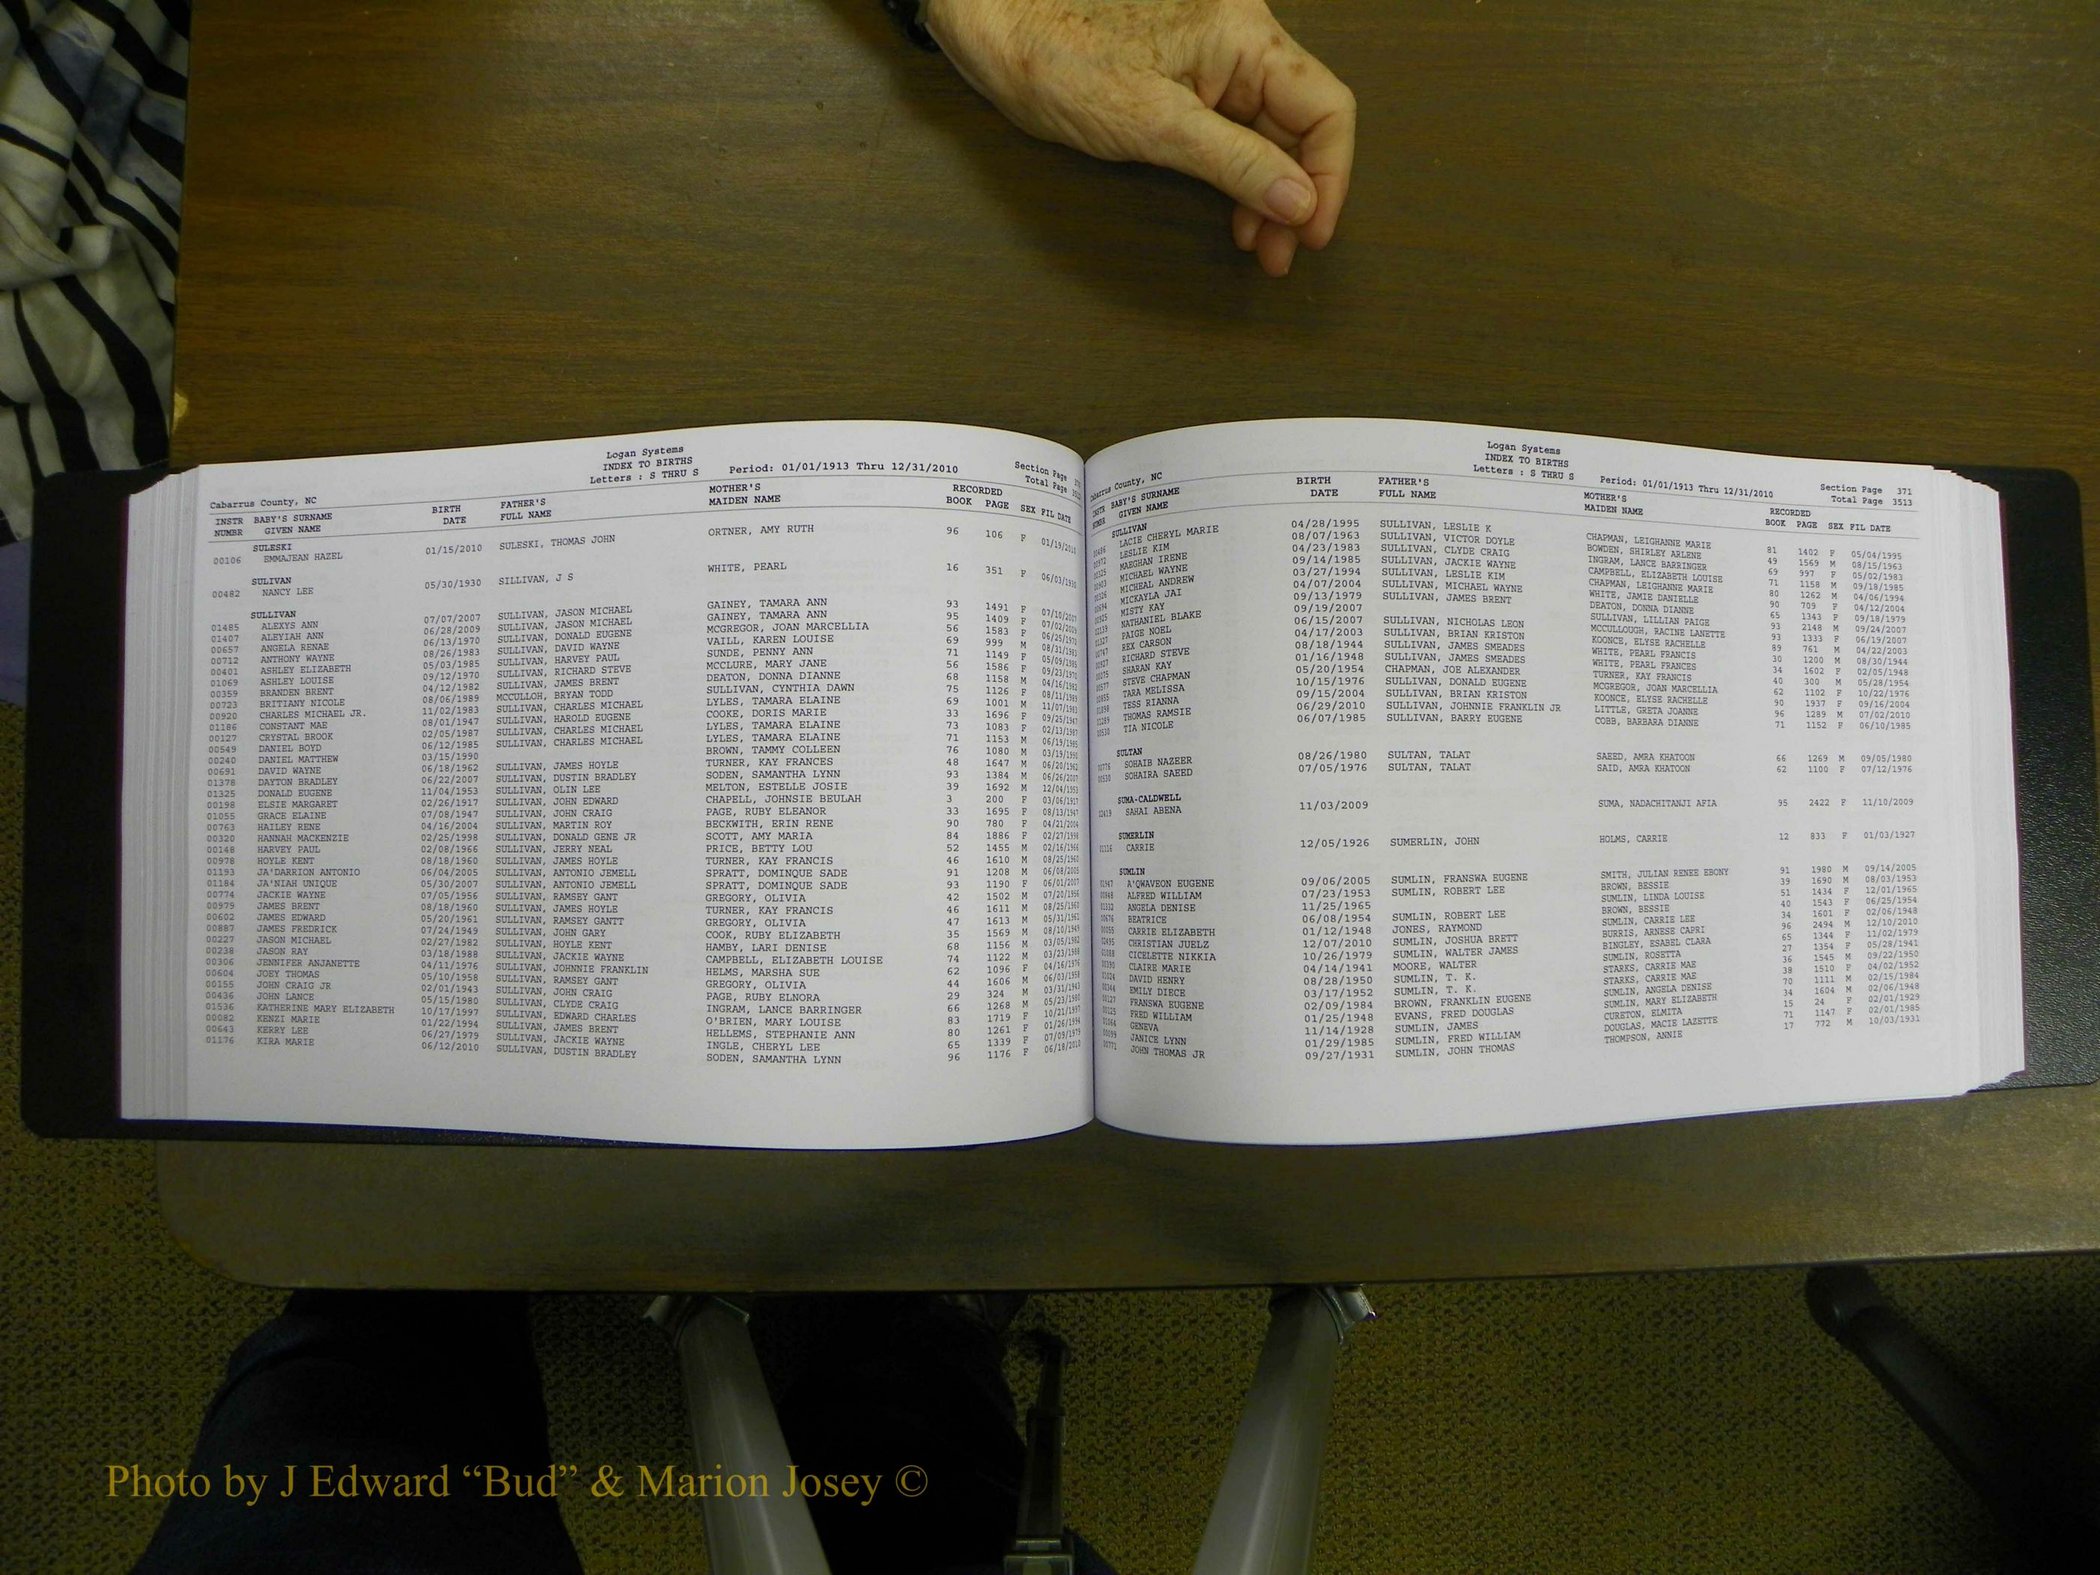 Logan Systems
INDEX TO BIRTHS
Letters : S THRU S
Period: 01/01/1913 Thru 12/31/2010
Section Page
Total Page
Cabarrus County, NC
INSTR BABY'S SURNAME BIRTH FATHER'S MOTHER'S RECORDED
NUMBR GIVEN NAME DATE FULL NAME MAIDEN NAME BOOK PAGE SEX FIL DATE
SULESKI
00106 EMMAJEAN HAZEL 01/15/2010 SULESKI, THOMAS JOHN ORTNER, AMY RUTH 96 106 F 01/19/2010
SULIVAN
00482 NANCY LEE 05/30/1930 SILLIVAN, J S WHITE, PEARL 16 351 F 06/03/1930
SULLIVAN
01485 ALEXYS ANN 07/07/2007 SULLIVAN, JASON MICHAEL GAINEY, TAMARA ANN 93 1491 F 07/10/2007
01407 ALEYIAH ANN 06/28/2009 SULLIVAN, JASON MICHAEL GAINEY, TAMARA ANN 95 1409 F 07/02/2009
00657 ANGELA RENAE 06/13/1970 SULLIVAN, DONALD EUGENE MCGREGOR, JOAN MARCELLIA 56 1583 F 06/25/1970
00712 ANTHONY WAYNE 08/26/1983 SULLIVAN, DAVID WAYNE VAILL, KAREN LOUISE 69 999 M 08/31/1983
00401 ASHLEY ELIZABETH 05/03/1985 SULLIVAN, HARVEY PAUL SUNDE, PENNY ANN 71 1149 F 05/09/1985
01069 ASHLEY LOUISE 09/12/1970 SULLIVAN, RICHARD STEVE MCCLURE, MARY JANE 56 1586 F 09/23/1970
00359 BRANDEN BRENT 04/12/1982 SULLIVAN, JAMES BRENT DEATON, DONNA DIANNE 68 1158 M 04/16/1982
00723 BRITTIANY NICOLE 08/06/1989 MCCULLOH, BRYAN TODD SULLIVAN, CYNTHIA DAWN 75 1126 F 08/11/1989
00920 CHARLES MICHAEL JR. 11/02/1983 SULLIVAN, CHARLES MICHAEL LYLES, TAMARA ELAINE 69 1001 M 11/07/1983
01186 CONSTANT MAE 08/01/1947 SULLIVAN, HAROLD EUGENE COOKE, DORIS MARIE 33 1696 F 09/25/1947
00127 CRYSTAL BROOK 02/05/1987 SULLIVAN, CHARLES MICHAEL LYLES, TAMARA ELAINE 73 1083 F 02/13/1987
00549 DANIEL BOYD 06/12/1985 SULLIVAN, CHARLES MICHAEL LYLES, TAMARA ELAINE 71 1153 M 06/19/1985
00240 DANIEL MATTHEW 03/15/1990 BROWN, TAMMY COLLEEN 76 1080 M 03/19/1990
00691 DAVID WAYNE 06/18/1962 SULLIVAN, JAMES HOYLE TURNER, KAY FRANCES 48 1647 M 06/20/1962
01378 DAYTON BRADLEY 06/22/2007 SULLIVAN, DUSTIN BRADLEY SODEN, SAMANTHA LYNN 93 1384 M 06/26/2007
01325 DONALD EUGENE 11/04/1953 SULLIVAN, OLIN LEE MELTON, ESTELLE JOSIE 39 1692 M 12/04/1953
00198 ELSIE MARGARET 02/26/1917 SULLIVAN, JOHN EDWARD CHAPELL, JOHNSIE BEULAH 3 200 F 03/06/1917
01055 GRACE ELAINE 07/08/1947 SULLIVAN, JOHN CRAIG PAGE, RUBY ELEANOR 33 1695 F 08/13/1947
00763 HAILEY RENE 04/16/2004 SULLIVAN, MARTIN ROY BECKWITH, ERIN RENE 90 780 F 04/21/2004
00320 HANNAH MACKENZIE 02/25/1998 SULLIVAN, DONALD GENE JR SCOTT, AMY MARIA 84 1886 F 02/27/1998
00148 HARVEY PAUL 02/08/1966 SULLIVAN, JERRY NEAL PRICE, BETTY LOU 52 1455 M 02/16/1966
00978 HOYLE KENT 08/18/1960 SULLIVAN, JAMES HOYLE TURNER, KAY FRANCIS 46 1610 M 08/25/1960
01193 JA'DARRION ANTONIO 06/04/2005 SULLIVAN, ANTONIO JEMELL SPRATT, DOMINQUE SADE 91 1208 M 06/08/2005
01184 JA'NIAH UNIQUE 05/30/2007 SULLIVAN, ANTONIO JEMELL SPRATT, DOMINQUE SADE 93 1190 F 06/01/2007
00774 JACKIE WAYNE 07/05/1956 SULLIVAN, RAMSEY GANT GREGORY, OLIVIA 42 1502 M 07/20/1956
00979 JAMES BRENT 08/18/1960 SULLIVAN, JAMES HOYLE TURNER, KAY FRANCIS 46 1611 M 08/25/1960
00602 JAMES EDWARD 05/20/1961 SULLIVAN, RAMSEY GANTT GREGORY, OLIVIA 47 1613 M 05/31/1961
00887 JAMES FREDRICK 07/24/1949 SULLIVAN, JOHN GARY COOK, RUBY ELIZABETH 35 1569 M 08/10/1949
00227 JASON MICHAEL 02/27/1982 SULLIVAN, HOYLE KENT HAMBY, LARI DENISE 68 1156 M 03/05/1982
00238 JASON RAY 03/18/1988 SULLIVAN, JACKIE WAYNE CAMPBELL, ELIZABETH LOUISE 74 1122 M 03/23/1988
00306 JENNIFER ANJANETTE 04/11/1976 SULLIVAN, JOHNNIE FRANKLIN HELMS, MARSHA SUE 62 1096 F 04/16/1976
00604 JOEY THOMAS 05/10/1958 SULLIVAN, RAMSEY GANT GREGORY, OLIVIA 44 1606 M 06/03/1958
00155 JOHN CRAIG JR 02/01/1943 SULLIVAN, JOHN CRAIG PAGE, RUBY ELNORA 29 324 M 03/31/1943
00436 JOHN LANCE 05/15/1980 SULLIVAN, CLYDE CRAIG INGRAM, LANCE BARRINGER 66 1268 M 05/23/1980
01536 KATHERINE MARY ELIZABETH 10/17/1997 SULLIVAN, EDWARD CHARLES O'BRIEN, MARY LOUISE 83 1719 F 10/21/1997
00082 KENZI MARIE 01/22/1994 SULLIVAN, JAMES BRENT HELLEMS, STEPHANIE ANN 80 1261 F 01/26/1994
00643 KERRY LEE 06/27/1979 SULLIVAN, JACKIE WAYNE INGLE, CHERYL LEE 65 1339 F 07/09/1979
01176 KIRA MARIE 06/12/2010 SULLIVAN, DUSTIN BRADLEY SODEN, SAMANTHA LYNN 96 1176 F 06/18/2010
Logan Systems
INDEX TO BIRTHS
Letters : S THRU S
Period: 01/01/1913 Thru 12/31/2010
Section Page 371
Total Page 3513
Cabarrus County, NC
INSTR BABY'S SURNAME BIRTH FATHER'S MOTHER'S RECORDED
NUMBR GIVEN NAME DATE FULL NAME MAIDEN NAME BOOK PAGE SEX FIL DATE
SULLIVAN
LACIE CHERYL MARIE 04/28/1995 SULLIVAN, LESLIE K CHAPMAN, LEIGHANNE MARIE 81 1402 F 05/04/1995
LESLIE KIM 08/07/1963 SULLIVAN, VICTOR DOYLE BOWDEN, SHIRLEY ARLENE 49 1569 M 08/15/1963
MAEGHAN IRENE 04/23/1983 SULLIVAN, CLYDE CRAIG INGRAM, LANCE BARRINGER 69 997 F 05/02/1983
MICHAEL WAYNE 09/14/1985 SULLIVAN, JACKIE WAYNE CAMPBELL, ELIZABETH LOUISE 71 1158 M 09/18/1985
MICHEAL ANDREW 03/27/1994 SULLIVAN, LESLIE KIM CHAPMAN, LEIGHANNE MARIE 80 1262 M 04/06/1994
MICKAYLA JAI 04/07/2004 SULLIVAN, MICHAEL WAYNE WHITE, JAMIE DANIELLE 90 709 F 04/12/2004
MISTY KAY 09/13/1979 SULLIVAN, JAMES BRENT DEATON, DONNA DIANNE 65 1343 F 09/18/1979
NATHANIEL BLAKE 09/19/2007 SULLIVAN, LILLIAN PAIGE 93 2148 M 09/24/2007
PAIGE NOEL 06/15/2007 SULLIVAN, NICHOLAS LEON MCCULLOUGH, RACINE LANETTE 93 1333 F 06/19/2007
REX CARSON 04/17/2003 SULLIVAN, BRIAN KRISTON KOONCE, ELYSE RACHELLE 89 761 M 04/22/2003
RICHARD STEVE 08/18/1944 SULLIVAN, JAMES SMEADES WHITE, PEARL FRANCIS 30 1200 M 08/30/1944
SHARAN KAY 01/16/1948 SULLIVAN, JAMES SMEADES WHITE, PEARL FRANCES 34 1602 F 02/05/1948
STEVE CHAPMAN 05/20/1954 CHAPMAN, JOE ALEXANDER TURNER, KAY FRANCIS 40 300 M 05/28/1954
TARA MELISSA 10/15/1976 SULLIVAN, DONALD EUGENE MCGREGOR, JOAN MARCELLIA 62 1102 F 10/22/1976
TESS RIANNA 09/15/2004 SULLIVAN, BRIAN KRISTON KOONCE, ELYSE RACHELLE 90 1937 F 09/16/2004
THOMAS RAMSIE 06/29/2010 SULLIVAN, JOHNNIE FRANKLIN JR LITTLE, GRETA JOANNE 96 1289 M 07/02/2010
TIA NICOLE 06/07/1985 SULLIVAN, BARRY EUGENE COBB, BARBARA DIANNE 71 1152 F 06/10/1985
SULTAN
SOHAIB NAZEER 08/26/1980 SULTAN, TALAT SAEED, AMRA KHATOON 66 1269 M 09/05/1980
SOHAIRA SAEED 07/05/1976 SULTAN, TALAT SAID, AMRA KHATOON 62 1100 F 07/12/1976
SUMA-CALDWELL
SAHAI ABENA 11/03/2009 SUMA, NADACHITANJI AFIA 95 2422 F 11/10/2009
SUMERLIN
CARRIE 12/05/1926 SUMERLIN, JOHN HOLMS, CARRIE 12 833 F 01/03/1927
SUMLIN
A'QWAVEON EUGENE 09/06/2005 SUMLIN, FRANSWA EUGENE SMITH, JULIAN RENEE EBONY 91 1980 M 09/14/2005
ALFRED WILLIAM 07/23/1953 SUMLIN, ROBERT LEE BROWN, BESSIE 39 1690 M 08/03/1953
ANGELA DENISE 11/25/1965 SUMLIN, LINDA LOUISE 51 1434 F 12/01/1965
BEATRICE 06/08/1954 SUMLIN, ROBERT LEE BROWN, BESSIE 40 1543 F 06/25/1954
CARRIE ELIZABETH 01/12/1948 JONES, RAYMOND SUMLIN, CARRIE LEE 34 1601 F 02/06/1948
CHRISTIAN JUELZ 12/07/2010 SUMLIN, JOSHUA BRETT BURRIS, ARNESE CAPRI 96 2494 M 12/10/2010
CICELETTE NIKKIA 10/26/1979 SUMLIN, WALTER JAMES BINGLEY, ESABEL CLARA 65 1344 F 11/02/1979
CLAIRE MARIE 04/14/1941 MOORE, WALTER SUMLIN, ROSETTA 27 1354 F 05/28/1941
DAVID HENRY 08/28/1950 SUMLIN, T. K. STARKS, CARRIE MAE 36 1545 M 09/22/1950
EMILY DIECE 03/17/1952 SUMLIN, T. K. STARKS, CARRIE MAE 38 1510 F 04/02/1952
FRANSWA EUGENE 02/09/1984 BROWN, FRANKLIN EUGENE SUMLIN, ANGELA DENISE 70 1111 M 02/15/1984
FRED WILLIAM 01/25/1948 EVANS, FRED DOUGLAS SUMLIN, MARY ELIZABETH 34 1604 M 02/06/1948
GENEVA 11/14/1928 SUMLIN, JAMES CURETON, ELMITA 15 24 F 02/01/1929
JANICE LYNN 01/29/1985 SUMLIN, FRED WILLIAM DOUGLAS, MACIE LAZETTE 71 1147 F 02/01/1985
JOHN THOMAS JR 09/27/1931 SUMLIN, JOHN THOMAS THOMPSON, ANNIE 17 772 M 10/03/1931
Photo by J Edward “Bud” & Marion Josey ©